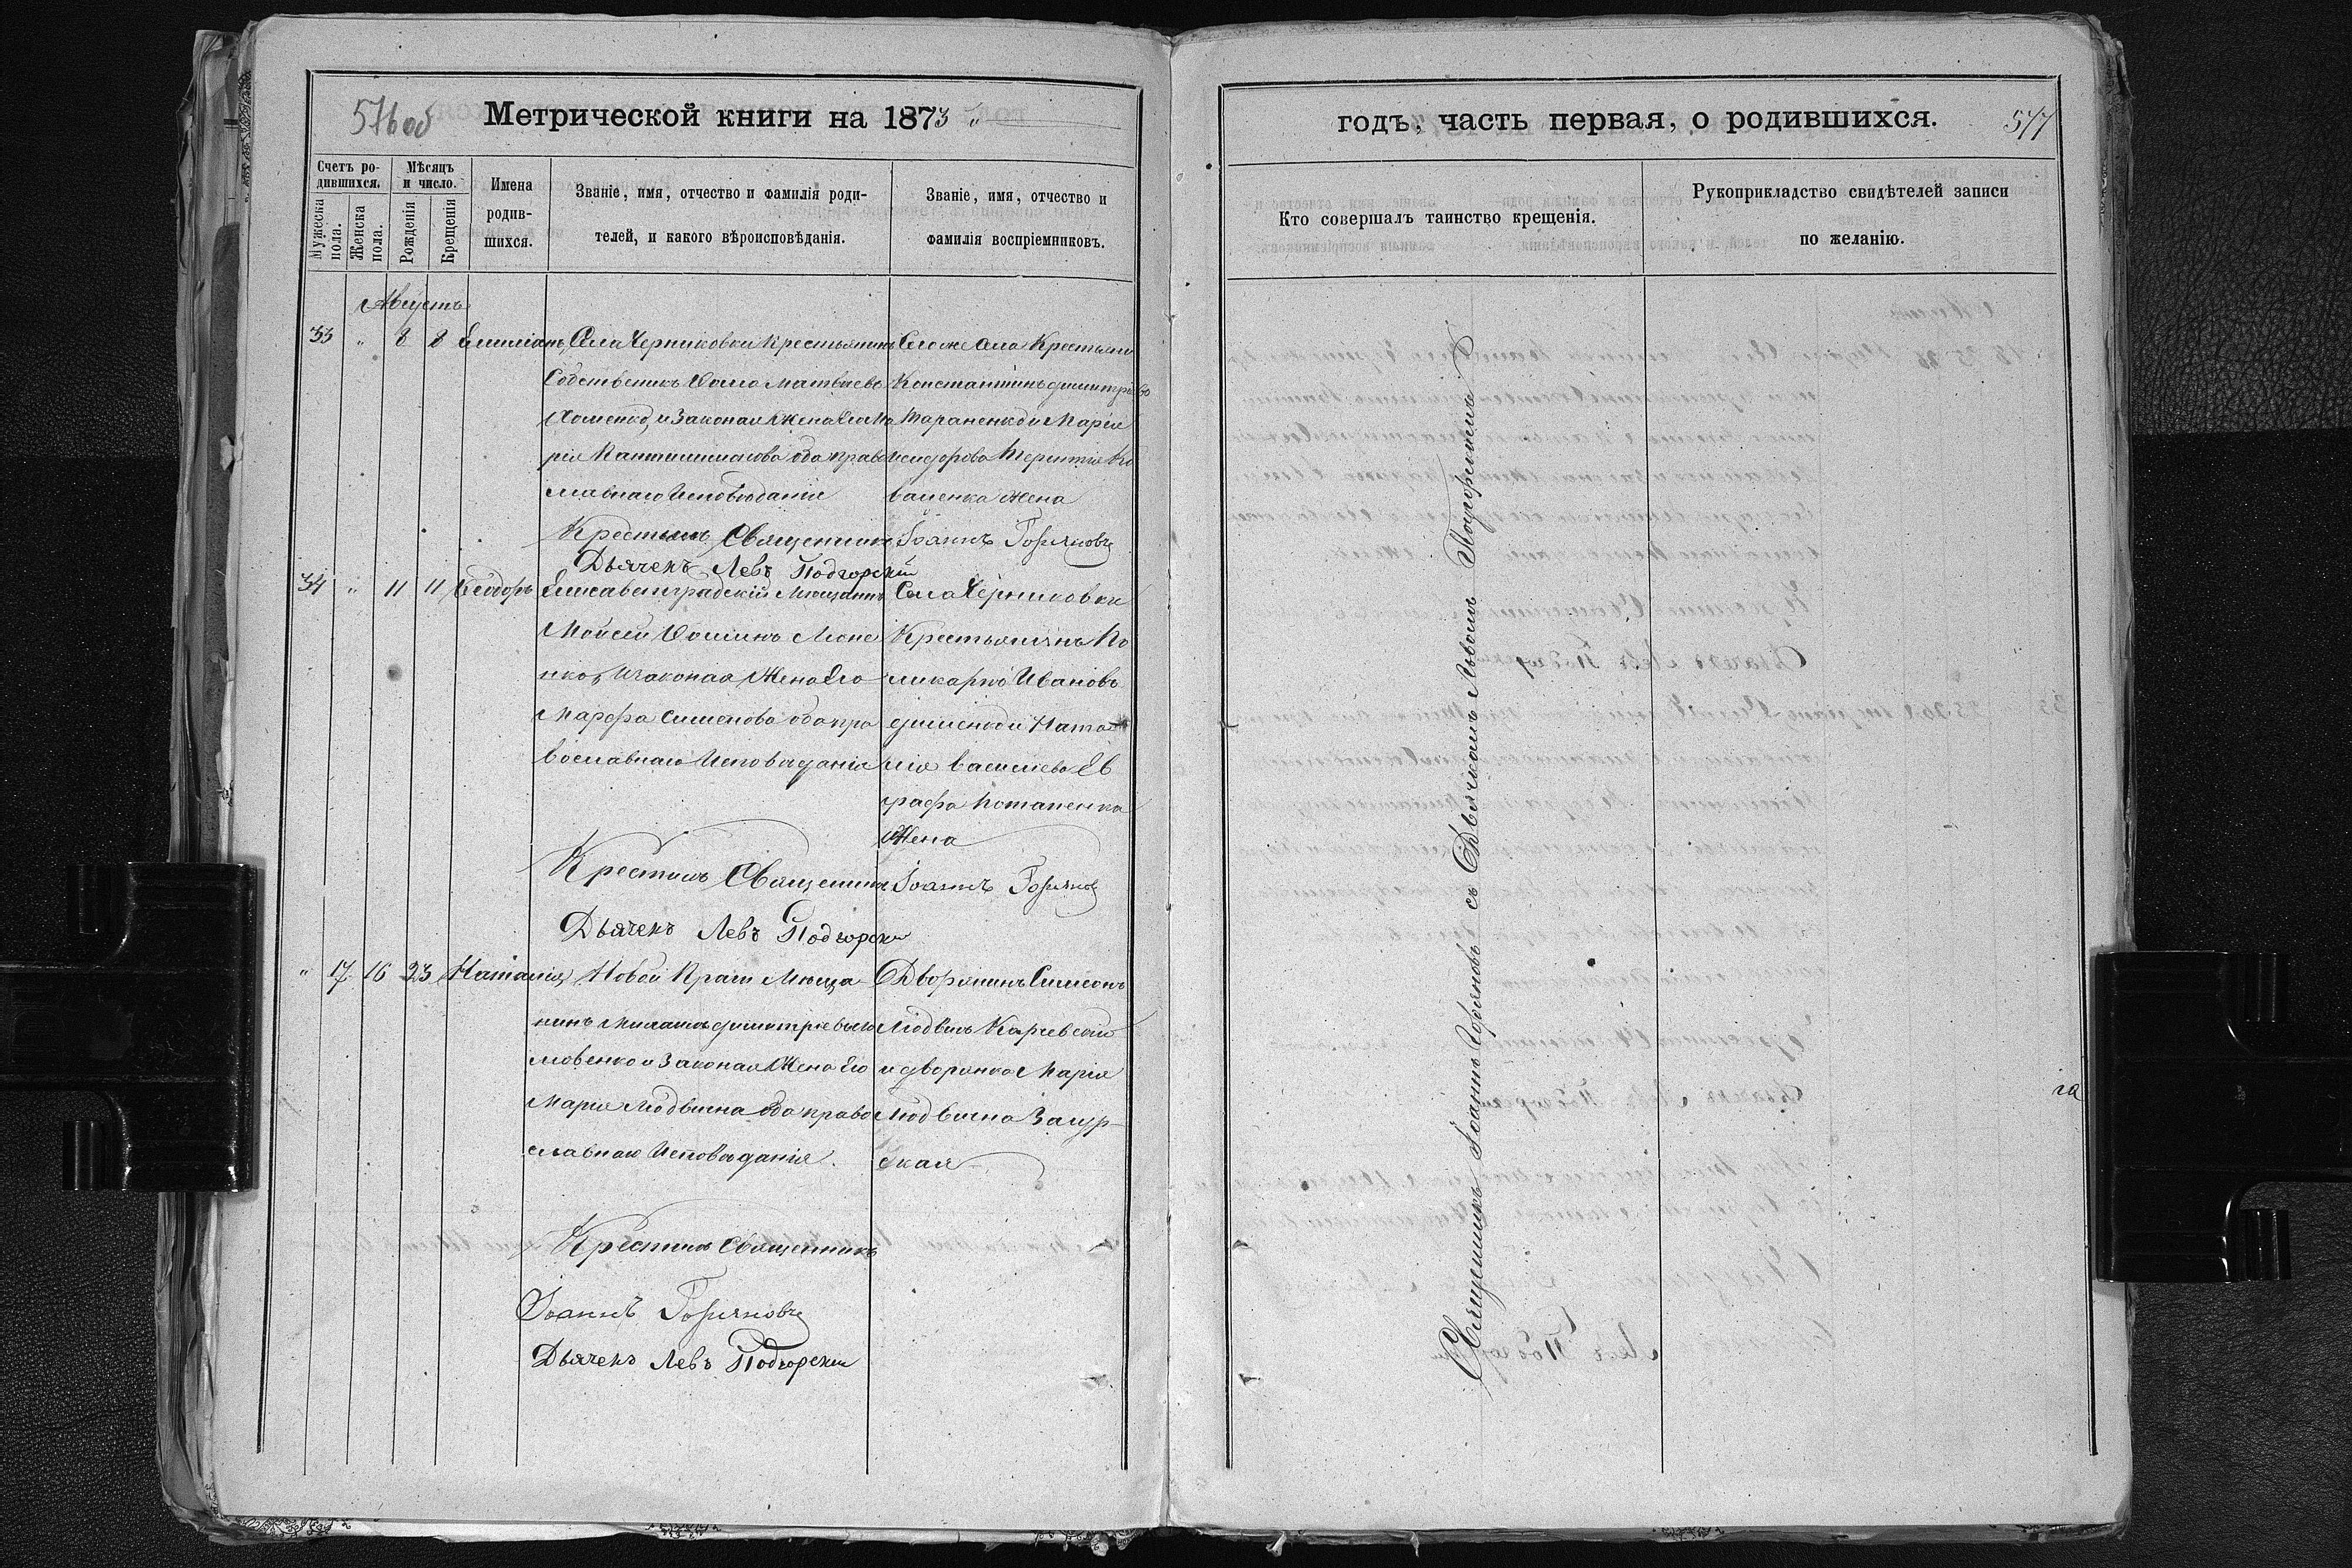 576 об
Метрической книги на 1873 "
Счетъ ро-
дившихся.
Мѣсяцъ
и число.
Мужеска
пола.
Женска
пола.
Рожденія
Крещенія
Имена
родив-
шихся.
Званіе, имя, отчество и фамилія роди-
телей, и какого вѣроисповѣданія.
Званіе, имя, отчество и
фамилія воспріемниковъ.
Августъ
33 " 8 8 Емиліанъ
Села Черниковки Крестьянинъ
Собственикъ Фома Матвѣевъ
Хоменко, и Законая Жена Его Ма
рія Пантилимонова оба право
славнаго Исповѣданія
Того же Села Крестьяни
Константинъ Димитріевъ
Тараненко и Марія
Исидорова Терентія Ко
валенка Жена
Крестилъ Священникъ Іоаннъ Горяновъ
Дьячекъ Левъ Подгорскій
34 " 11 11 Ѳеодоръ
Елисаветградскій Мѣщанинъ
Мойсей Фоминъ
нко, и Законая Жена Его
Марфа Симеонова оба пра
вославнаго Исповѣданія
Села Черниковки
Крестьянинъ По
ликарпъ Ивановъ
и Ната
лія Василіева Ев
графа Потапенка
Жена
Крестилъ Священникъ Іоаннъ Горяновъ
Дьячекъ Левъ Подгорскій
" 17 16 23 Наталія
Новой Праги Мѣща
нинъ Димитріевъ
мовенко и Законая Жена Его
Марія Людвигна оба право
славнаго Исповѣданія.
Дворянинъ Симеонъ
Людвигъ Карчевскій
и дворянка Марія
Людвигна Загур-
ская
Крестилъ Священникъ
Іоаннъ Горяновъ
Дьячекъ Левъ Подгорскій
годъ, часть первая, о родившихся.
577
Кто совершалъ таинство крещенія.
Рукоприкладство свидѣтелей записи
по желанію.
Священникъ Іоаннъ Горяновъ съ Дьячкомъ Львомъ